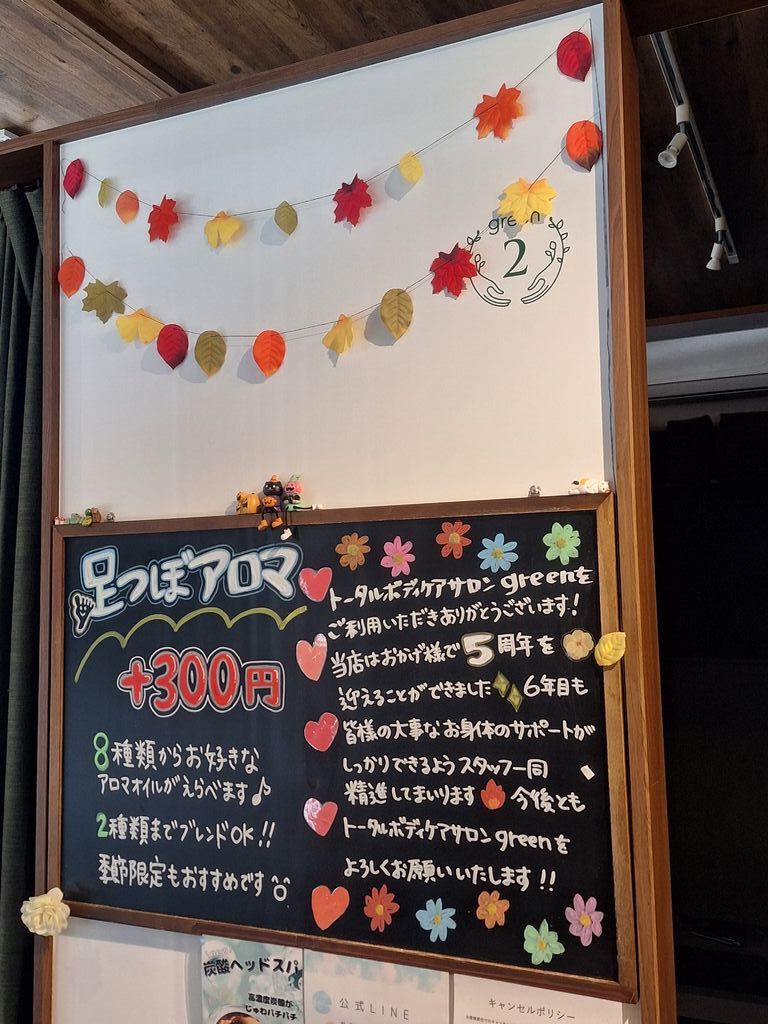 green
2
足つぼアロマ
+300円
8種類からお好きな
アロマオイルがえらべます♪
2種類までブレンドOK!!
季節限定もおすすめです
トータルボディケアサロンgreenを
ご利用いただきありがとうございます!
当店はおかげ様で5周年を
迎えることができました 6年目も
皆様の大事なお身体のサポートが
しっかりできるようスタッフ一同
精進してまいります 今後とも
トータルボディケアサロンgreenを
よろしくお願いいたします!!
炭酸ヘッドスパ
高濃度炭酸が
じゅわパチパチ
公式LINE
キャンセルポリシー